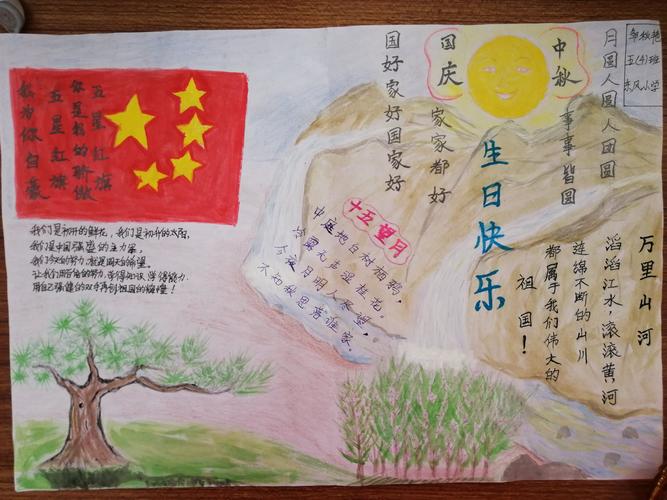 五(4)班
东风小学
月圆人圆人团圆
中秋
事事皆圆
国庆
家家都好
国好家好国家好
五星红旗
你是我的骄傲
五星红旗
我为你自豪
我们是初开的鲜花，我们是初升的太阳，
我们是中国强盛的主力军，
我们今天的努力，就是明天的希望，
让我们用百倍的努力，学得知识，学得能力，
用自己强健的双手再创祖国的辉煌！
生日快乐
十五望月
中庭地白树栖鸦，
冷露无声湿桂花。
今夜月明人尽望，
不知秋思落谁家。
万里山河
滔滔江水，滚滚黄河
连绵不断的山川
都属于我们伟大的
祖国！